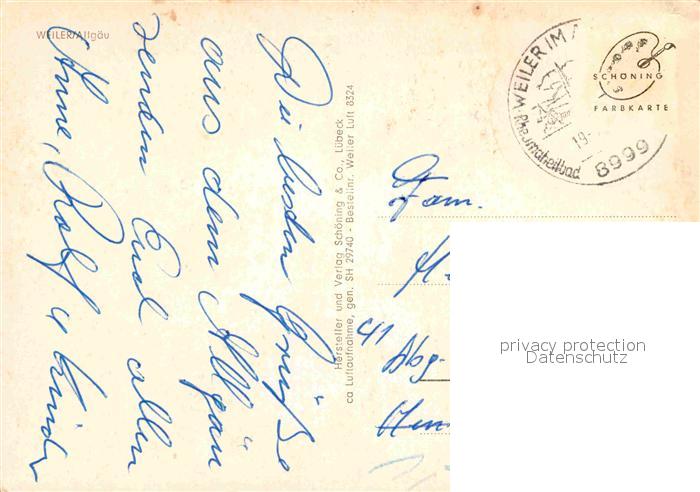 WEILER/Allgäu
Die besten Grüße
aus dem Allgäu
senden Euch allen
Anne, Rolf u Kinder
Hersteller und Verlag Schöning & Co., Lübeck
ca Luftaufnahme, gen. SH 29740 - Bestellnr. Weiler Luft 8324
WEILER IM
Rheumaheilbad
19.
8999
SCHÖNING
FARBKARTE
Fam.
41
privacy protection
Datenschutz